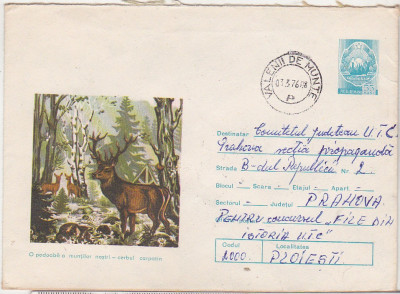 VALENII DE MUNTE
03.3.76.08
P
Destinatar Comitetul Judetean U.T.C.
Prahova secția propagandă
Strada B-dul Republicii Nr 2
Blocul Scara Etajul Apart
Sectorul Județul PRAHOVA
PENTRU concursul "FILE DIN
ISTORIA UTC"
Codul Localitatea
2000 PLOIEȘTI
O podoabă a munților noștri - cerbul carpatin